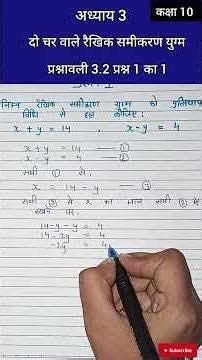 अध्याय 3
कक्षा 10
दो चर वाले रैखिक समीकरण युग्म
प्रश्नावली 3.2 प्रश्न 1 का 1
निम्न रैखिक समीकरण युग्म को
विधि से हल कीजिए :
x + y = 14 , x - y = 4
x + y = 14 — ①
x - y = 4 — ②
समी ① से.
x = 14 - y — ③
समी ③ से x का मान समी ② में
रखने पर.
14 - y - y = 4
14 - 2y = 4
-2y = 4
Subscribe